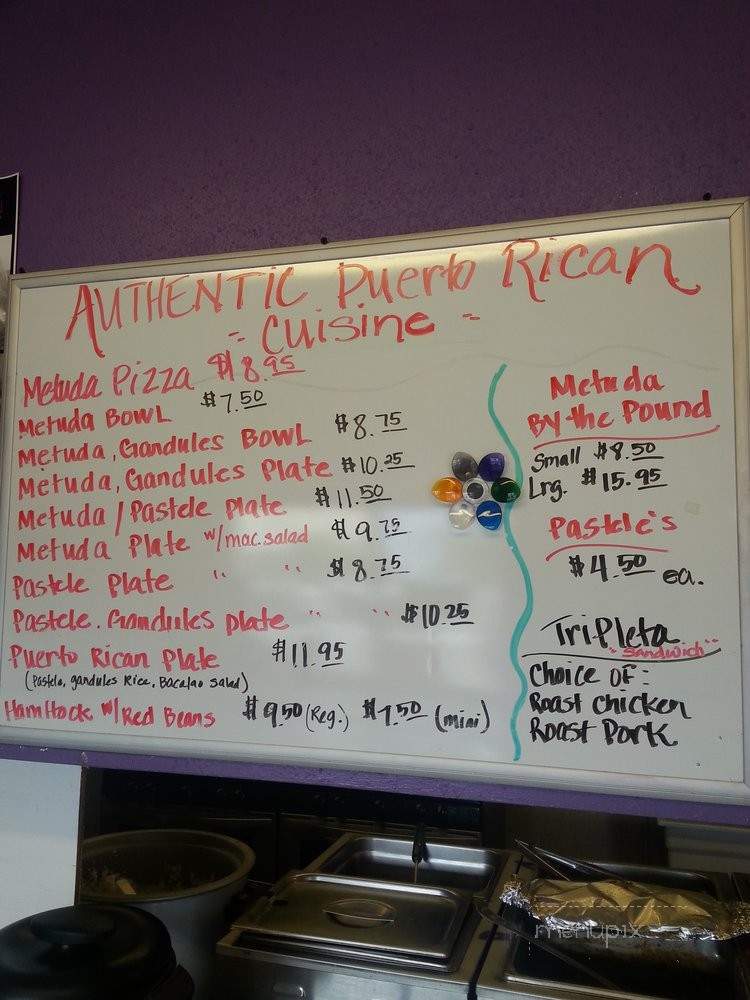 AUTHENTIC Puerto Rican
- Cuisine -
Metuda Pizza $18.95
Metuda Bowl $7.50
Metuda, Gandules Bowl $8.75
Metuda, Gandules Plate $10.25
Metuda / Pastele Plate $11.50
Metuda Plate w/mac.salad $9.75
Pastele Plate " " $8.75
Pastele. Gandules plate " " $10.25
Puerto Rican Plate $11.95
(Pastele, gandules Rice, Bacalao Salad)
Ham Hock w/ Red Beans $9.50 (Reg.) $7.50 (mini)
Metuda
By the Pound
Small $8.50
Lrg. $15.95
Pastele's
$4.50 ea.
Tripleta
"Sandwich"
Choice OF:
Roast Chicken
Roast Pork
menupix